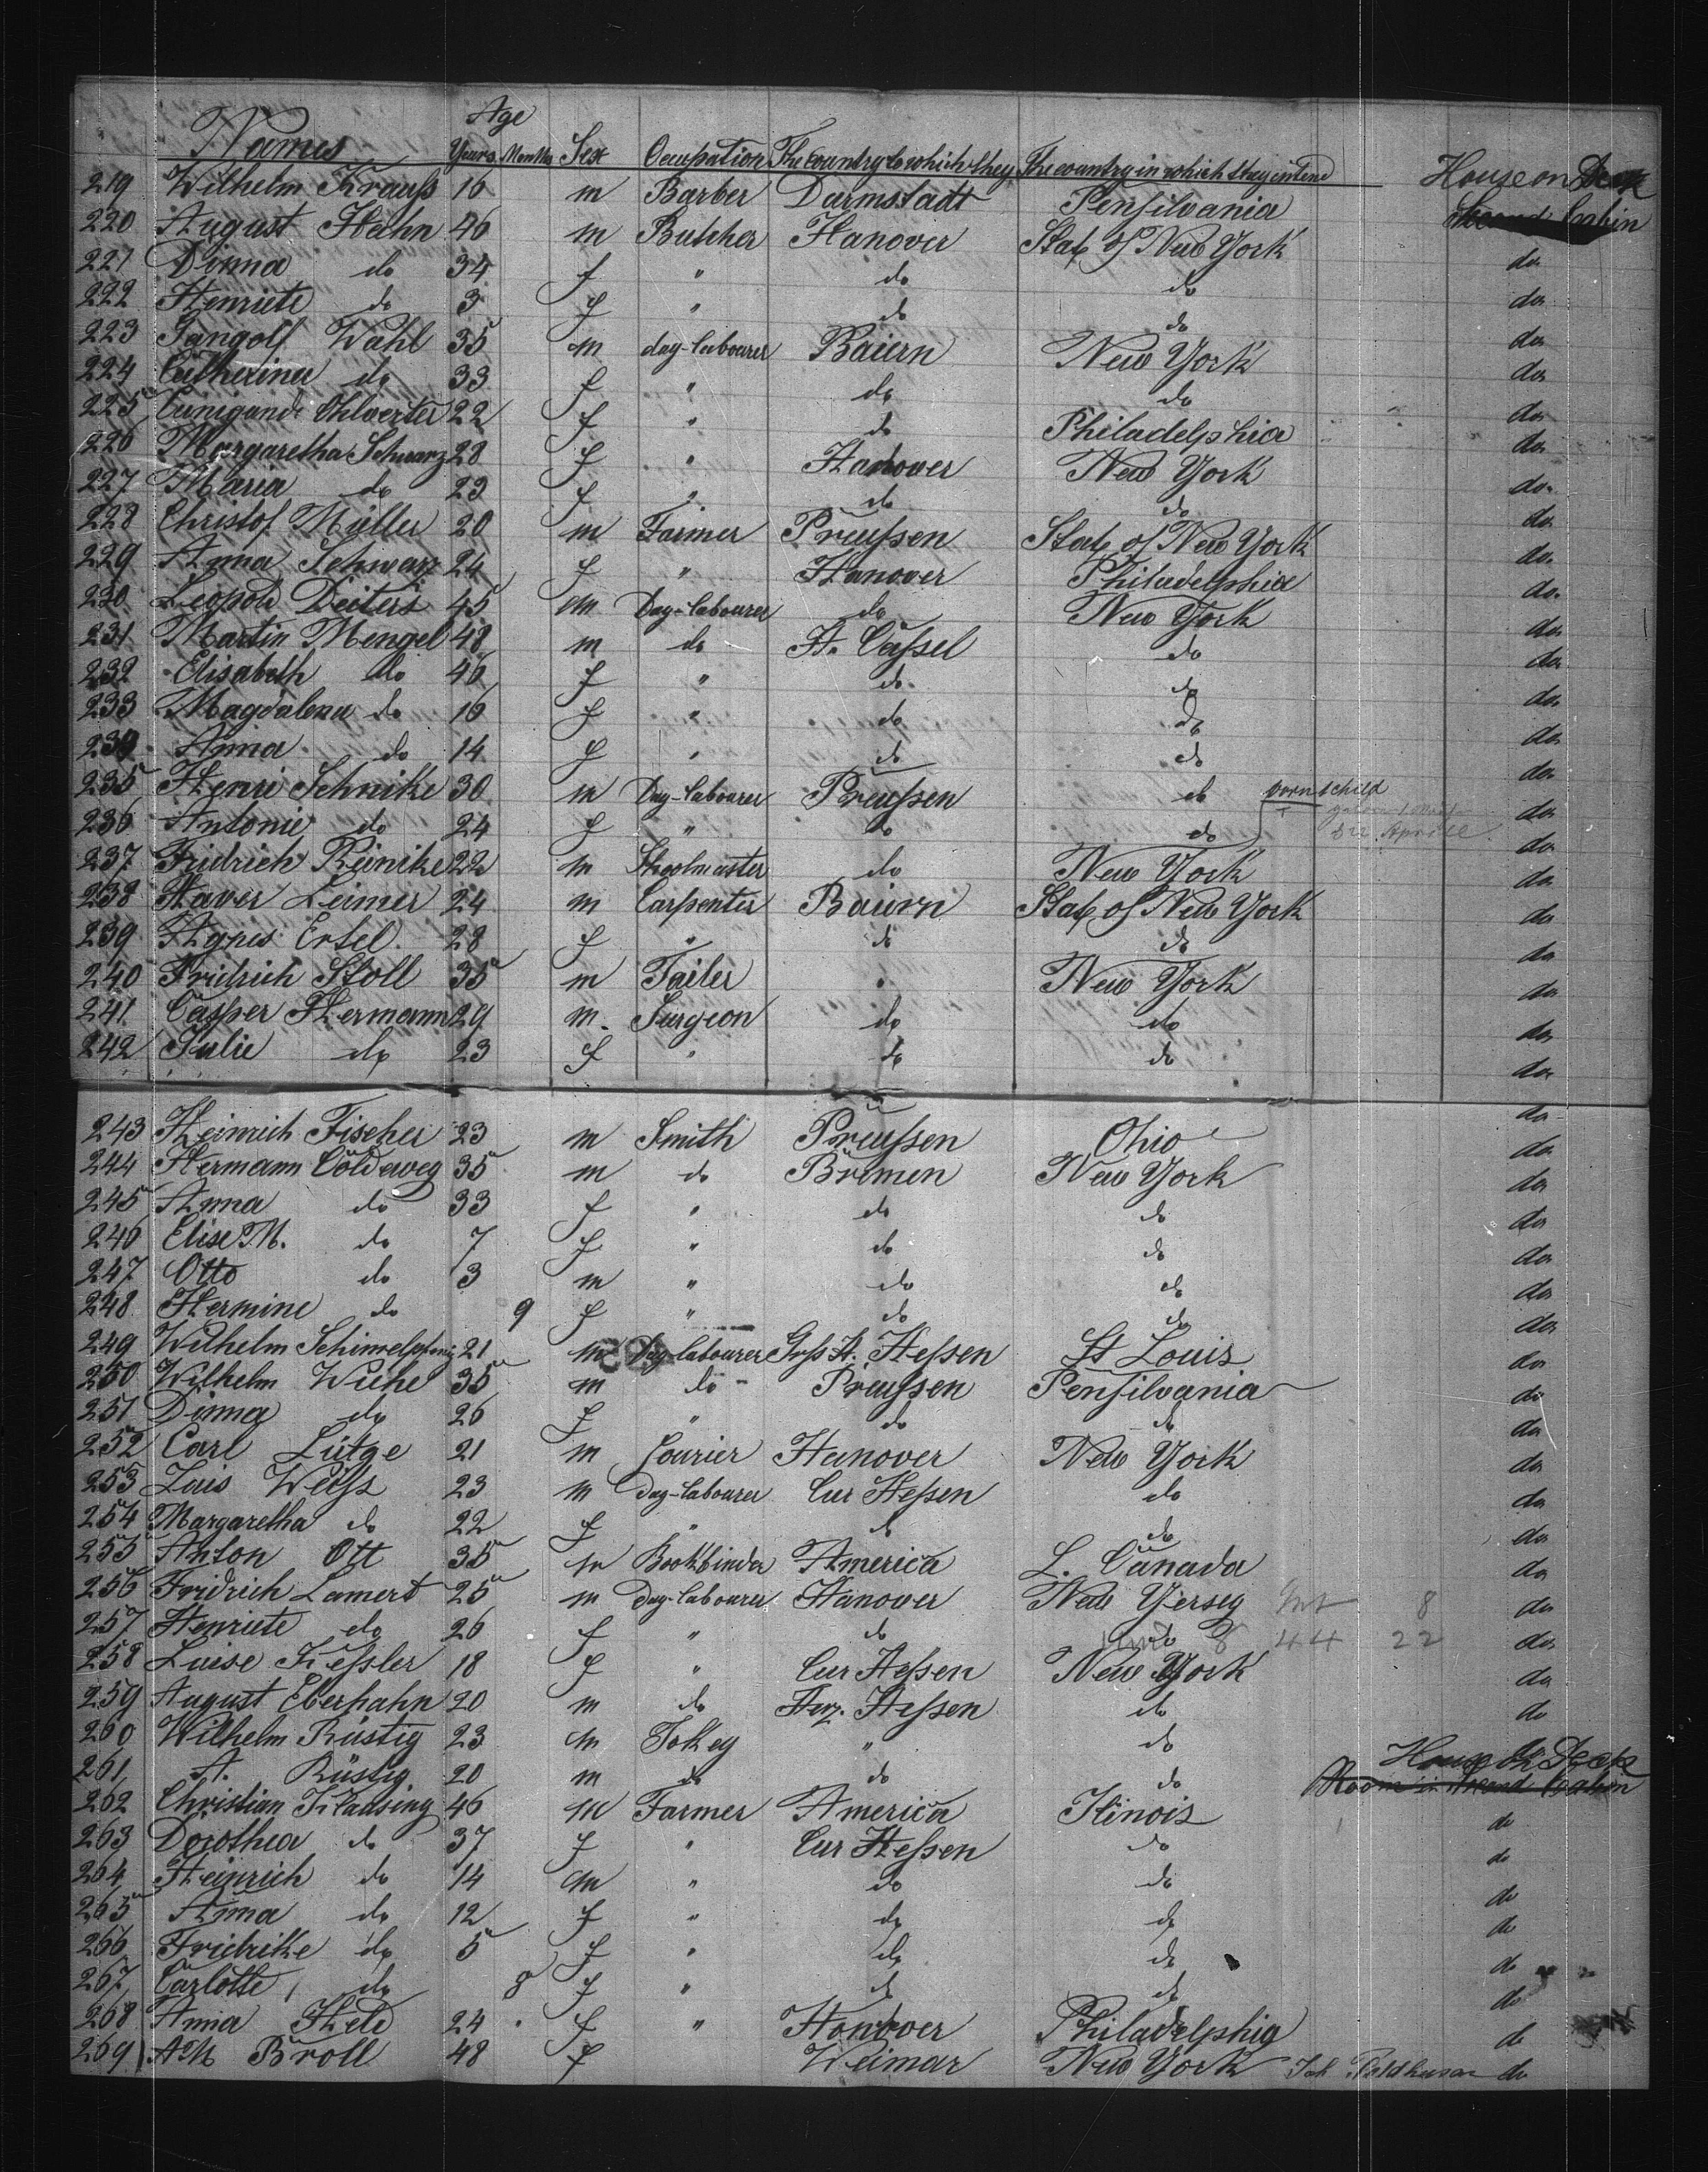 Age
Names Years Months Sex Occupation The Country to which they The country in which they intend House on Deck
219 Wilhelm Krauss 16 m Barber Darmstadt Pensilvania Second Cabin
220 August Hahn 46 m Butcher Hanover State of New York do
221 Dinna do 34 f " do do do
222 Henriete do 3 f " do do do
223 Gangolf Wahl 35 m day-labourer Baiern New York do
224 Catherina do 33 f " do do do
225 Cunigunde 22 f " do Philadelphia do
226 Margaretha Schwarz 28 f " Hanover New York do
227 Maria do 23 f " do do do
228 Christof Müller 20 m Farmer Preussen State of New York do
229 Anna Schwarz 24 f " Hanover Philadelphia do
230 Leopold Deiters 45 m Day-labourer do New York do
231 Martin Mengel 48 m do H. Cassel do do
232 Elisabeth do 46 f " do do do
233 Magdalena do 16 f " do do do
234 Anna do 14 f " do do do
235 Henri Schnike 30 m Day-labourer Preussen do born child do
236 Antonie do 24 f " do do do
237 Fridrich Reinike 22 m Shoolmaster do New York do
238 Xaver Leimer 24 m Carpenter Baiern State of New York do
239 Agnes Ertel 28 f " do do do
240 Fridrich Stoll 35 m Tailer " New York do
241 Casper Hermann 29 m. Surgeon do do do
242 Julie do 23 f " do do do
243 Heinrich Fischer 23 m Smith Preussen Ohio do
244 Hermann Coldeweg 35 m do Bremen New York do
245 Anna do 33 f " do do do
246 Elise M. do 7 f " do do do
247 Otto do 3 m " do do do
248 Hermine do 9 f " do do do
249 Wilhelm Schimelpfenig 21 m Day-labourer Grss H. Hessen St Louis do
250 Wilhelm Wiehe 35 m do Preussen Pensilvania do
251 Dinna do 26 f " do do do
252 Carl Lütge 21 m Courier Hanover New York do
253 Louis Weiss 23 m Day-labourer Cur Hessen do do
254 Margaretha do 22 f " do do do
255 Anton Ott 35 m Bookbinder America L. Canada do
256 Fridrich Lamert 25 m Day-labourer Hanover New Yersey 8 do
257 Henriete do 26 f " do do 8 44 22 do
258 Luise Kessler 18 f " Cur Hessen New York do
259 August Eberhahn 20 m do Herz. Hessen do do
260 Wilhelm Rüstig 23 m Jokey " do do
261 A. Rüstig 20 m do do do House on Deck
Room in Second Cabin
262 Christian Klausing 46 m Farmer America Ilinois do
263 Dorothea do 37 f " Cur Hessen do do
264 Heinrich do 14 m " do do do
265 Anna do 12 f " do do do
266 Fridrike do 5 f " do do do
267 Carlotte do 8 f " do do do
268 Anna Held 24 f " Hanover Philadelphia do
269 AM Broll 48 f Weimar New York do